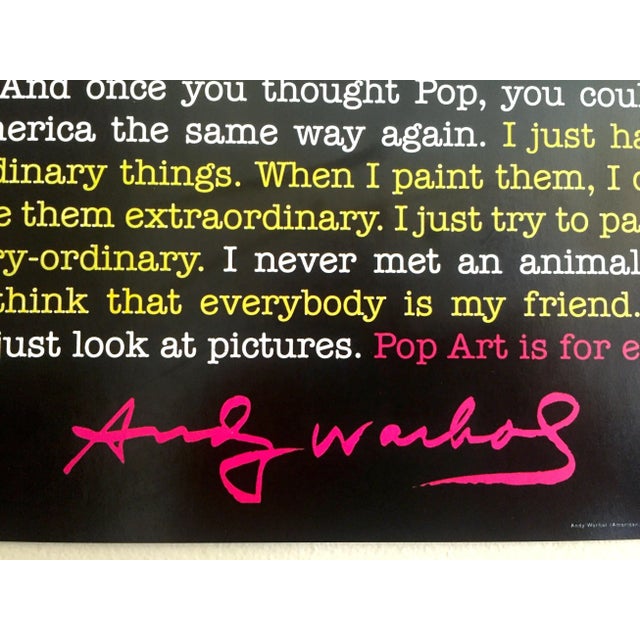 And once you thought Pop, you coul
nerica the same way again. I just ha
dinary things. When I paint them, I d
e them extraordinary. I just try to pa
ry-ordinary. I never met an animal
think that everybody is my friend.
just look at pictures. Pop Art is for e
Andy Warhol
Andy Warhol (American,